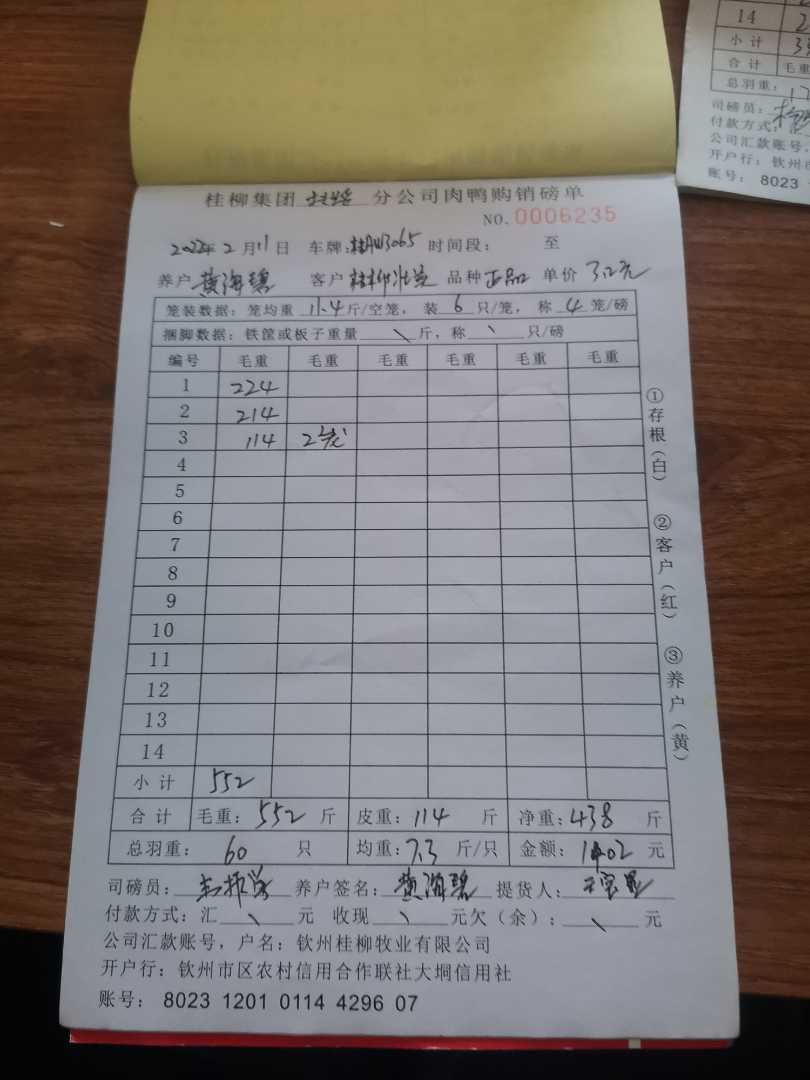 14
小计
合计 毛重
总羽重:
司磅员:
付款方式:
公司汇款账号,
开户行: 钦州市
账号: 8023
桂柳集团 分公司肉鸭购销磅单
NO. 0006235
2022年2月11日 车牌: 3065 时间段: 至
养户 黄海碧 客户 桂柳 品种 正品 单价 3.2元
笼装数据: 笼均重 11.4 斤/空笼, 装 6 只/笼, 称 4 笼/磅
捆脚数据: 铁筐或板子重量 \ 斤, 称 \ 只/磅
编号 毛重 毛重 毛重 毛重 毛重 毛重
1 224
2 214
3 114 2笼
4
5
6
7
8
9
10
11
12
13
14
小计 552
合计 毛重: 552 斤 皮重: 114 斤 净重: 438 斤
总羽重: 60 只 均重: 7.3 斤/只 金额: 1402 元
司磅员: 养户签名: 黄海碧 提货人:
付款方式: 汇 \ 元 收现 \ 元欠(余): \ 元
公司汇款账号, 户名: 钦州桂柳牧业有限公司
开户行: 钦州市区农村信用合作联社大垌信用社
账号: 8023 1201 0114 4296 07
①存根(白) ②客户(红) ③养户(黄)